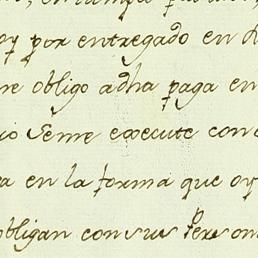 oy por entregado en
me obligo adha paga en
io Seme execute con
a en la forma que oy
obligan con sus Person